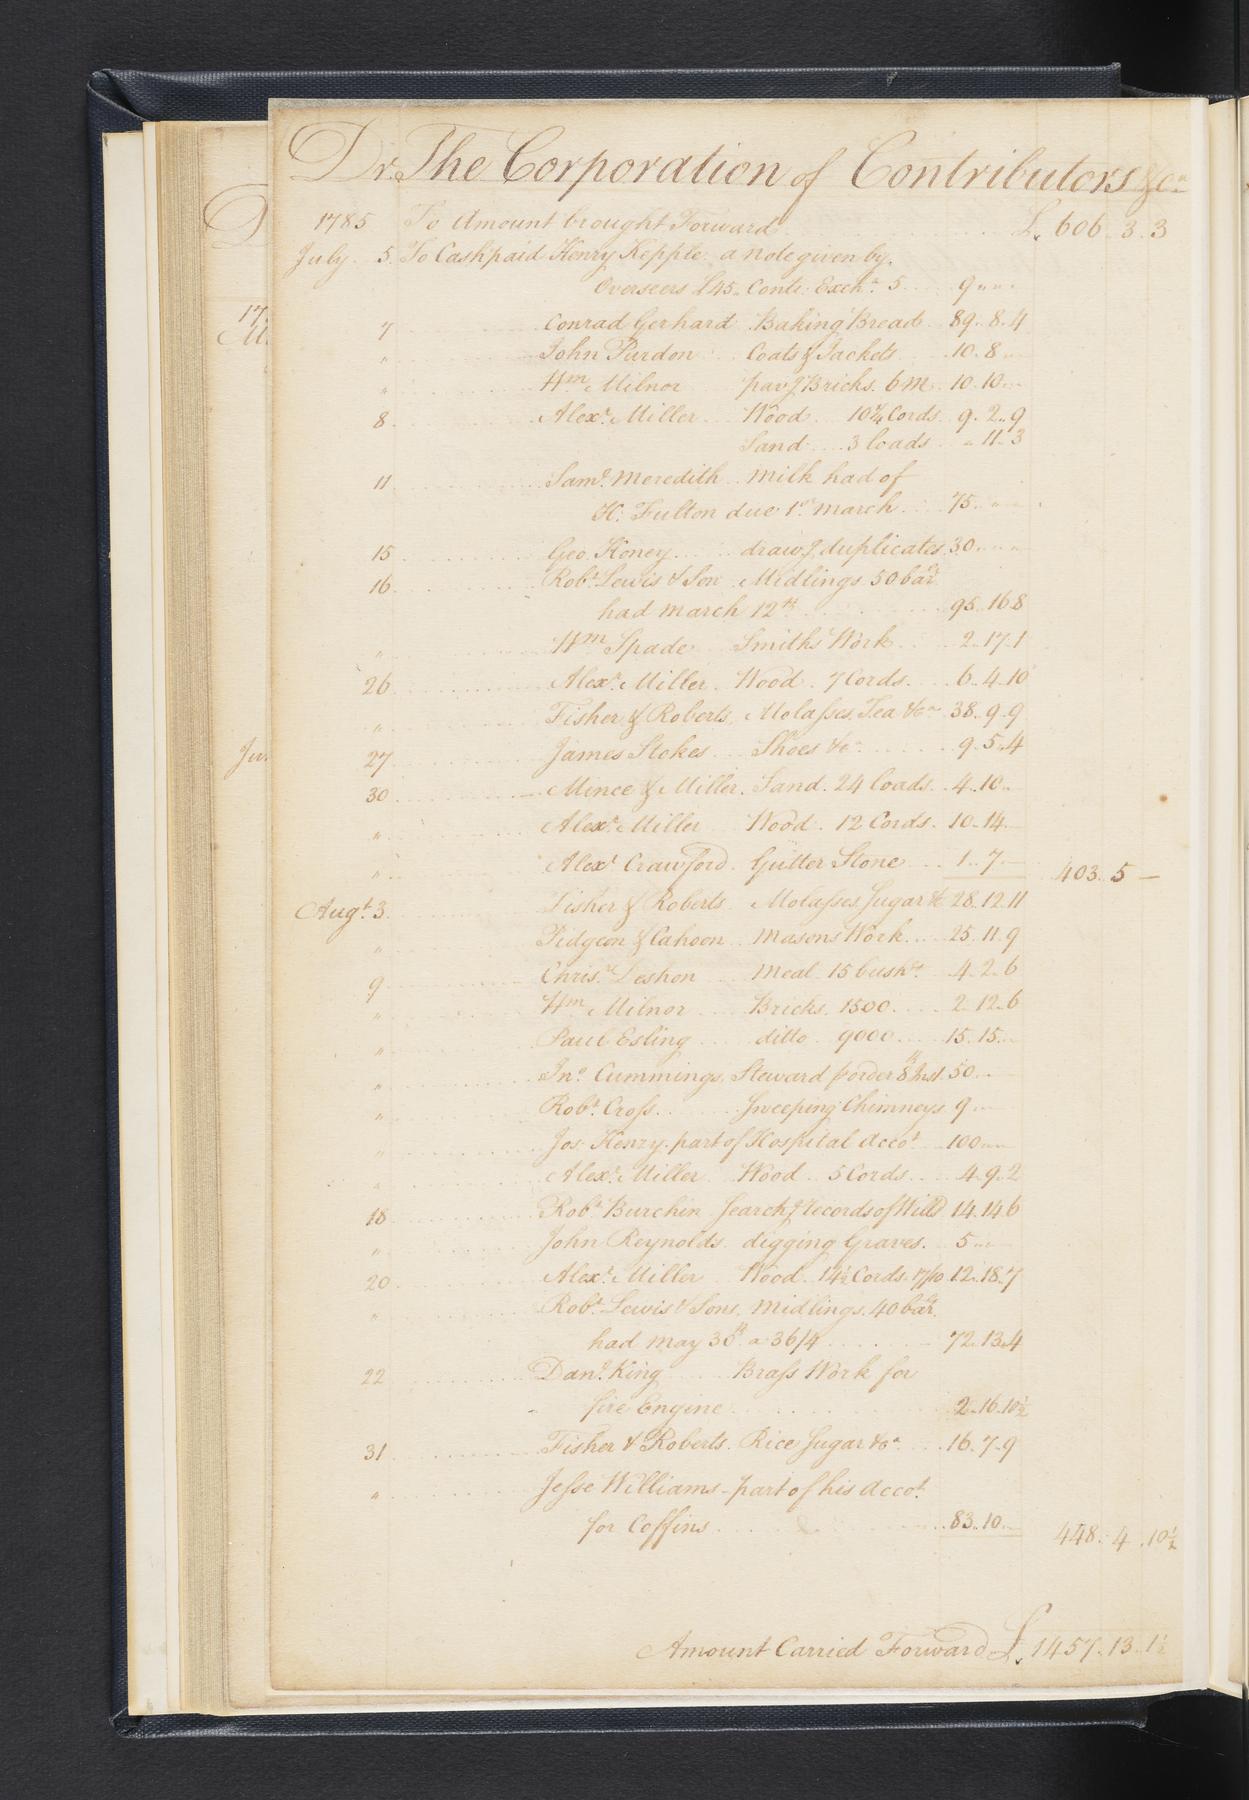 Dr. The Corporation of Contributors &ca
1785 To Amount brought Forward £. 606. 3. 3
July 5. To Cash paid Henry Kepple a note given by
Overseers £45. Conte. Exche. 5 9 " "
7 Conrad Gerhard Baking Bread 89. 8. 4
" John Purdon Coats & Jackets 10. 8 "
" Wm. Milnor pavg Bricks. 6 M. 10. 10 —
8 Alexr. Miller Wood 10¼ Cords 9. 2. 9
Sand 3 loads " 11. 3
11 Saml. Meredith milk had of
H. Fulton due 1st. march 75. " "
15 Geo. Honey drawg duplicates 30. " "
16 Robt. Lewis & Son Midlings 50 barrs
had march 12th. 95. 16 8
" Wm Spade Smiths Work 2. 17. 1
26 Alexr. Miller. Wood. 7 Cords. 6. 4. 10
" Fisher & Roberts, Molasses, Tea &ca 38. 9. 9
27 James Stokes Shoes &c. 9. 5. 4
30 Mince & Miller. Sand. 24 loads. 4. 10 "
" Alexr. Miller Wood. 12 Cords. 10. 14. —
" Alexr Crawford. Gutter Stone 1. 7 — 403. 5 —
Augt. 3. Fisher & Roberts Molasses Sugar &c 28. 12 11
" Pidgeon & Cahoon Masons Work 25. 11. 9
9 Chrisr. Deshon Meal 15 bushs. 4. 2. 6
" Wm. Milnor Bricks. 1500. 2. 12. 6
" Paul Esling ditto 9000 15. 15. —
" Jno. Cummings, Steward p order 8th Inst. 50. —
" Robt. Cross. Sweeping Chimneys 9 —
" Jos. Henzy. part of Hospital Accot. 100 —
" Alexr. Miller Wood 5 Cords 4. 9. 2
18 Robt. Burchin Searchg Records of Wills 14. 14 6
" John Reynolds digging Graves. 5 —
20 Alexr. Miller Wood. 14½ Cords. 17/10 12. 18. 7
" Robt. Lewis & Sons. Midlings. 40 barrs.
had may 30th a 36/4 72. 13. 4
22 Danl. King Brass Work for
fire Engine 2. 16. 10½
31 Fisher & Roberts. Rice Sugar &ca. 16. 7. 9
" Jesse Williams - part of his Accot.
for Coffins 83. 10. — 448. 4. 10½
Amount Carried Forward £. 1457. 13. 1½